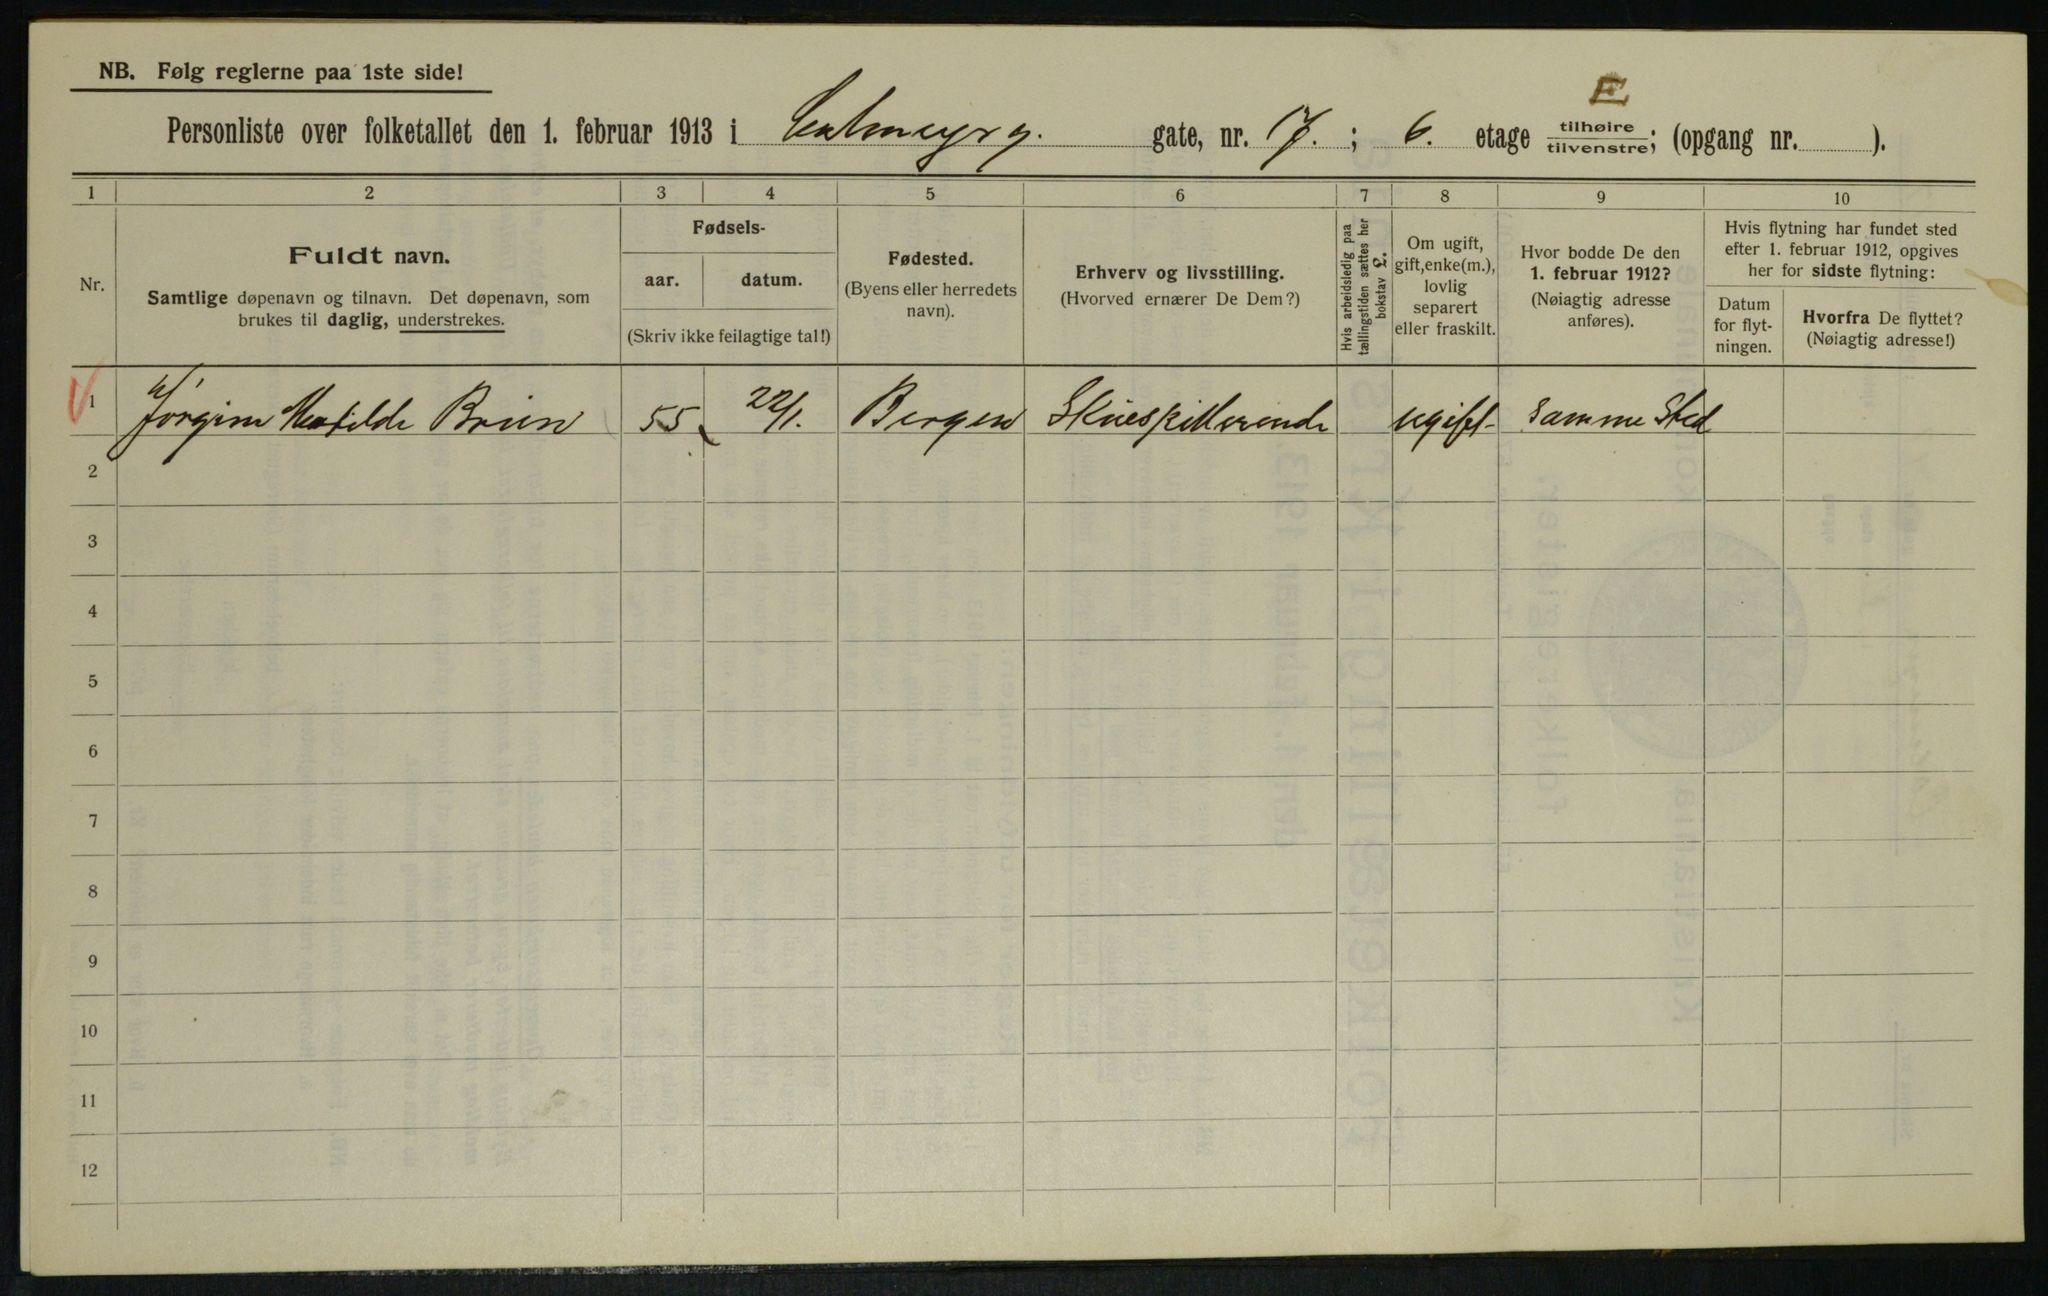 NB. Følg reglerne paa 1ste side!
E
Personliste over folketallet den 1. februar 1913 i Calmeyrg. gate, nr. 17.; 6. etage tilhøire / tilvenstre; (opgang nr. ).
1 2 3 4 5 6 7 8 9 10
Nr.
Fuldt navn.
Samtlige døpenavn og tilnavn. Det døpenavn, som
brukes til daglig, understrekes.
Fødsels-
aar. datum.
(Skriv ikke feilagtige tal!)
Fødested.
(Byens eller herredets
navn).
Erhverv og livsstilling.
(Hvorved ernærer De Dem?)
Hvis arbeidsledig paa
tællingstiden sættes her
bokstav L.
Om ugift,
gift, enke(m.),
lovlig
separert
eller fraskilt.
Hvor bodde De den
1. februar 1912?
(Nøiagtig adresse
anføres).
Hvis flytning har fundet sted
efter 1. februar 1912, opgives
her for sidste flytning:
Datum
for flyt-
ningen.
Hvorfra De flyttet?
(Nøiagtig adresse!)
1 Jørgine Matilde Bruun 55 22/1. Bergen Skuespillerinde ugift samme Sted
2
3
4
5
6
7
8
9
10
11
12